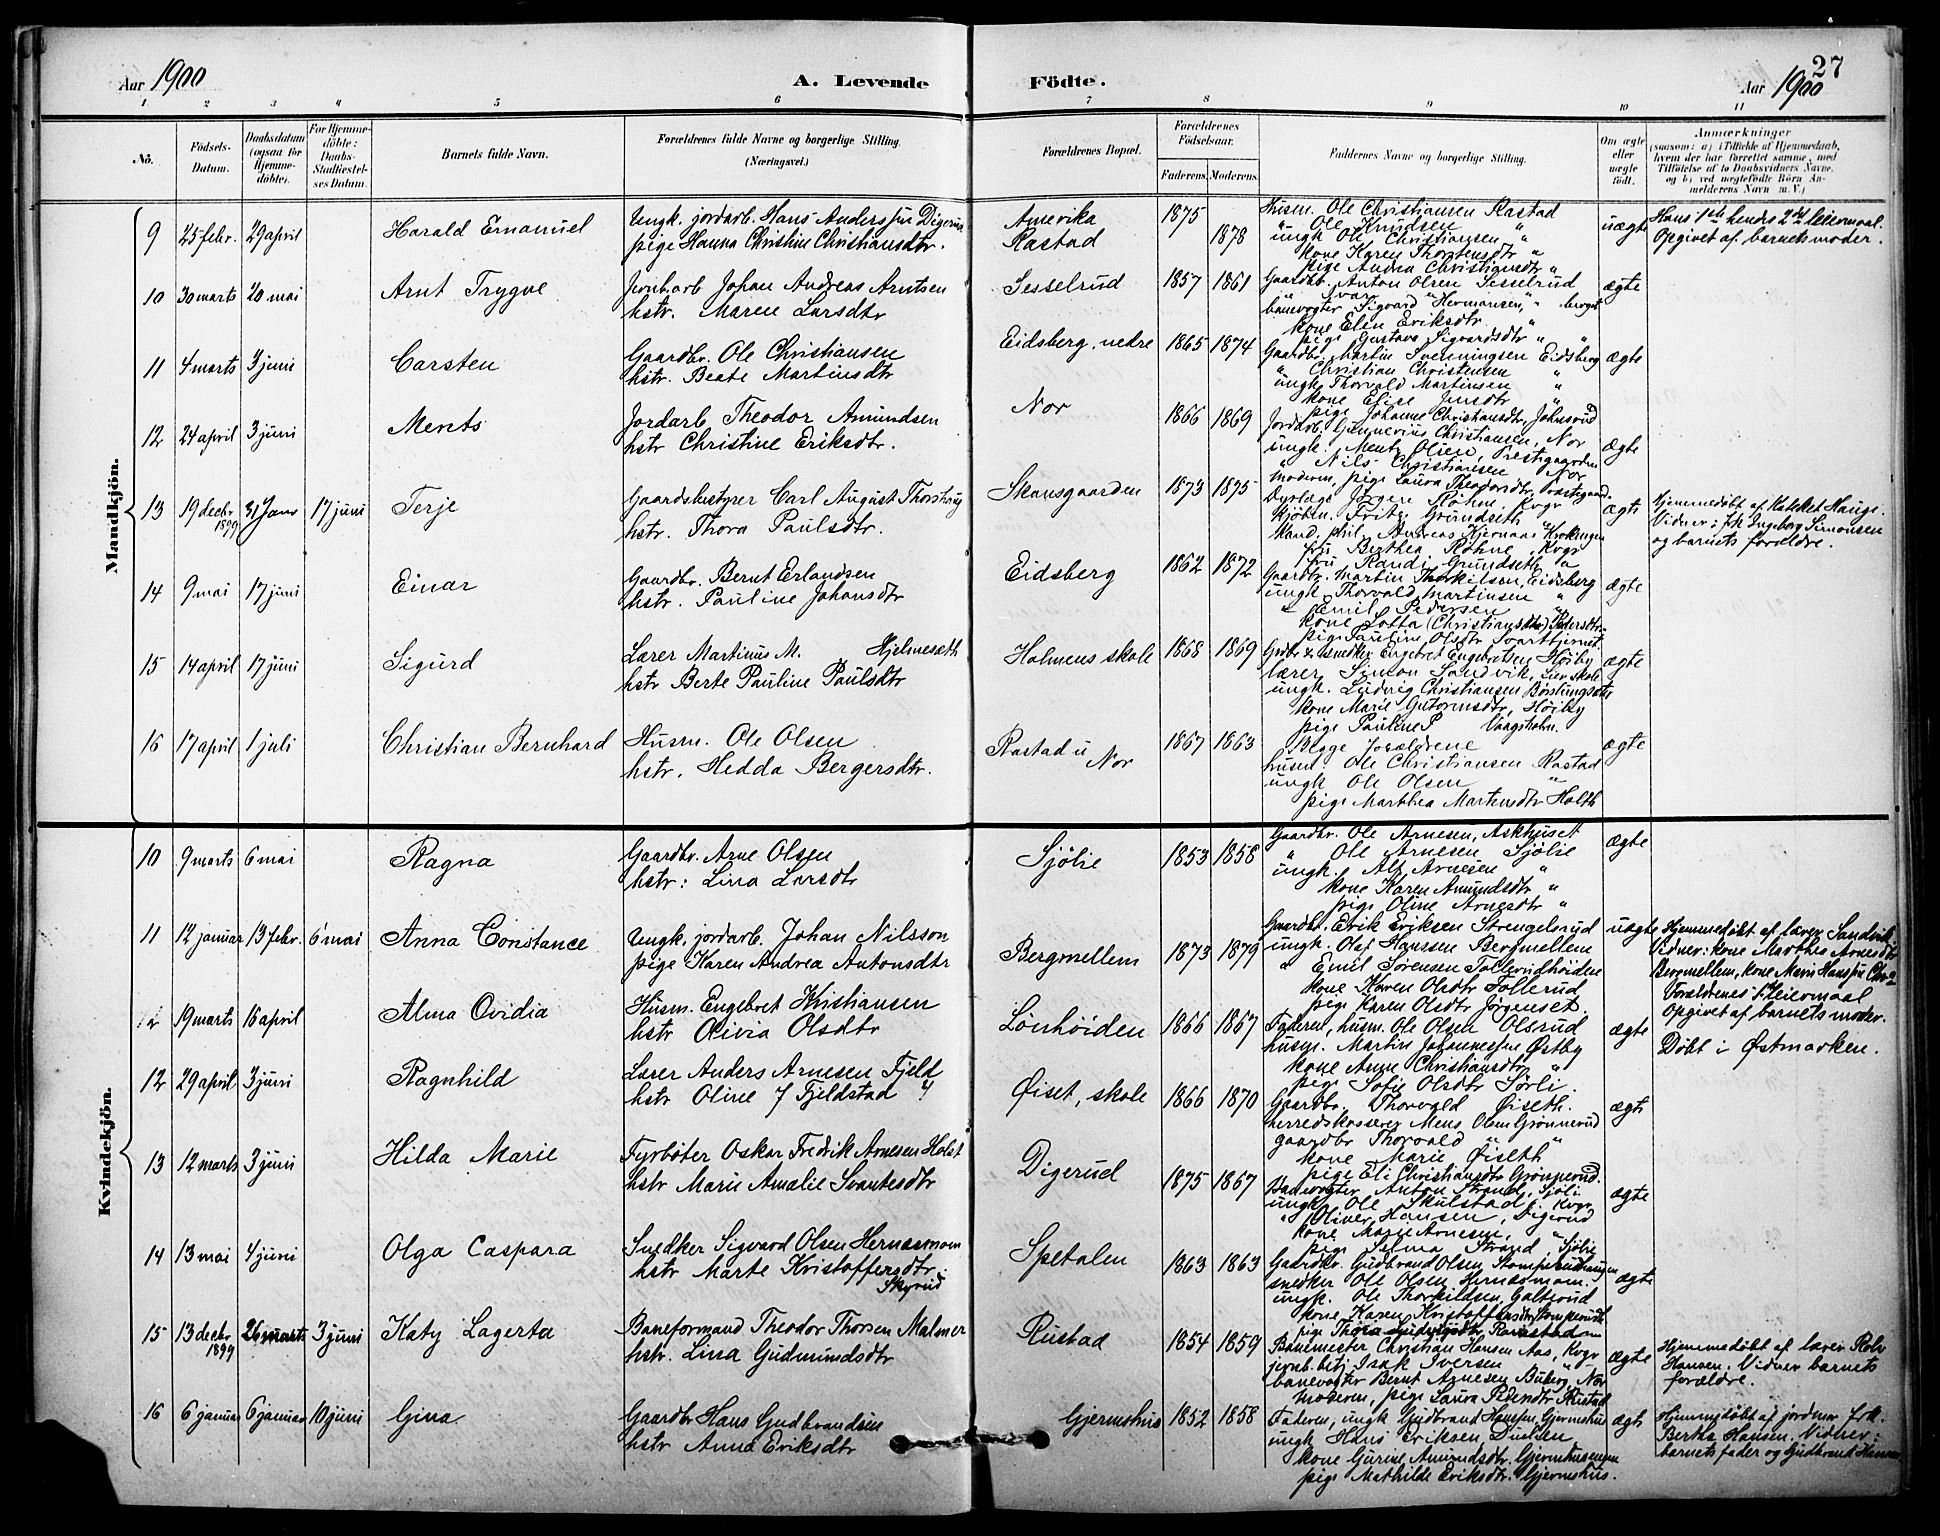 Aar 1900
A. Levende Födte.
27
Aar 1900
1 2 3 4 5 6 7 8 9 10 11
No.
Födsels-Datum.
Daabsdatum (ogsaa for Hjemmedöbte).
For Hjemmedöbte: Daabs-Stadfæstelses Datum.
Barnets fulde Navn.
Forældrenes fulde Navne og borgerlige Stilling. (Næringsvei.)
Forældrenes Bopæl.
Forældrenes Födselsaar.
Faderens. Moderens.
Faddernes Navne og borgerlige Stilling.
Om ægte eller uægte født.
Anmærkninger
(saasom: a) i Tilfælde af Hjemmedaab, hvem der har forrettet samme, med Tilföielse af to Daabsvidners Navne, og b) ved uægtefödte Börn Anmelderens Navn m. V.)
Mandkjön.
9 25 febr. 29 april Harald Emanuel
Ungk. jordarb. Hans Anderssen Digerud
pige Hanna Christine Christiansdtr.
Amerika
Rastad
1875 1878
Husm. Ole Christiansen Rastad
" Ole Knudsen "
ungk Ole Christiansen "
kone Karen Thorstensdtr "
pige Andrea Christiansdtr "
uægte
Hans 1ste hendes 2det leiermaal.
Opgivet af barnets moder.
10 30 marts 20 mai Arnt Trygve
Jernb.arb Johan Andreas Arntsen
hstr. Maren Larsdtr
Sesselrud
1857 1861
Gaardbr. Anton Olsen Sesselrud
" Ivar " "
banevogter Sigvard Hermansen,
kone Elin Eriksdtr "
pige Gustava Sigvardsdtr "
ægte
11 4 marts 3 juni Carsten
Gaardbr. Ole Christiansen
hstr. Beate Martinsdtr
Eidsberg, nedre
1865 1874
Gaardbr. Martin Svenningsen Eidsberg
" Christian Christensen "
ungk Thorvald Martinsen "
kone Elise Jensdtr "
pige Johanne Christiansdtr, Johnsrud
ægte
12 24 april 3 juni Ments
Jordarb Theodor Amundsen
hstr Christine Eriksdtr.
Nor
1866 1869
Jordarb. Gunnerius Christiansen, Nor
ungk. Mentz Olsen, Prestegaarden
" Nils Christiansen Nor
Moderen, pige Laura Theodorsdtr, Prestegaard.
ægte
13 19 decbr 1899 31 Janr 17 juni Terje
Gaardsbestyrer Carl August Thorshaug
hstr. Thora Paulsdtr.
Skansgaarden
1873 1875
Dyrlæge Jørgen Røhne, Kvgr
Kjøbm. Fritz Grundseth "
Kand. phil. Andreas Hjernaas Hvokingen
fru Berthea Røhne, Kvgr
fru Randi Grundseth "
ægte
Hjemmedøbt af Kateket Hauge.
Vidner: frk Ingeborg Simonsen
og barnets forældre.
14 9 mai 17 juni Einar
Gaardbr. Bernt Erlandsen
hstr. Pauline Johansdtr
Eidsberg
1862 1872
Gaardbr. Martin Thorkilsen, Eidsberg
ungk Thorvald Martinsen "
" Emil Pedersen "
kone Lotta (Christiansdtr) Pedersdtr
pige Pauline Olsdtr Svarttjernet
ægte
15 14 april 17 juni Sigurd
Lærer Martinus M. Hjelmeseth
hstr Berte Pauline Paulsdtr
Holmens skole
1868 1869
Grdbr. & snedker Engebret Engebretsen Høiby
lærer Simon Sandvik, Lier skole
ungk. Ludvig Christiansen Børslungsæter
kone Marie Gutormsdtr, Høiby
pige Pauline P Vaagsholm.
ægte
16 17 april 1 juli Christian Bernhard
Husm. Ole Olsen
hstr. Hedda Bergersdtr.
Rastad u Nor
1867 1863
Begge forældrene
husm. Ole Christiansen Rastad
ungk Ole Olsen "
pige Marthea Martinsdtr Holth
ægte
Kvindekjön.
10 9 marts 6 mai Ragna
Gaardbr. Arne Olsen
hstr: Lina Larsdtr
Sjølie
1853 1858
Gaardbr. Ole Arnesen, Askhuset
" Ole Arnesen Sjølie
ungk. Alf Arnesen "
kone Karen Amundsdtr "
pige Oline Arnesdtr "
ægte
11 12 januar 13 febr. 6 mai Anna Constance
Ungk. jordarb. Johan Nilsson
pige Karen Andrea Antonsdtr
Bergmellem
1873 1879
Gaardbr. Erik Eriksen Strengelsrud
ungk. Olof Hanssen Bergmellem
" Emil Sørensen Tollerudhøiden
kone Karen Olsdtr Tollerud
pige Karen Olsdtr Jørgenset.
uægte
Hjemmedøbt af lærer Sandvik
Vidner: kone Marthea Arnesdtr
Bergmellem, kone Maria Hanssen
Forældrenes 1ste leiermaal
Opgivet af barnets moder.
12 19 marts 16 april Alma Ovidia
Husm. Engebret Kristiansen
hstr Olivia Olsdtr
Lønhøiden
1866 1867
Faderen, husm. Ole Olsen Olsrud
husm. Martin Johannessen Østby
kone Anne Christiansdtr "
pige Sofie Olsdtr Sørli.
ægte
Døbt i Østmarken.
12 29 april 3 juni Ragnhild
Lærer Anders Arnesen Fjeld
hstr Oline F Fjeldstad
Øiset, skole
1866 1870
Gaardbr. Thorvald Øiseth.
herredskasserer Mens Olsen Grønnerud
gaardbr Thorvald " "
kone Marie Øiseth
pige Eli Christiansdtr Grønnerud.
ægte
13 12 marts 3 juni Hilda Marie
Fyrbøter Oskar Fredrik Arnesen Holst
hstr Marie Amalie Svantesdtr
Digerud
1875 1867
Banevogter Anton Strand, Sjøli
ungk Ole Skulstad, Kvgr
" Oliver Hansen, Digerud
kone Marie Arnesen, "
pige Selma Strand, Sjølie
ægte
14 13 mai 4 juni Olga Caspara
Snedker Sigvard Olsen Hernæsmoen
hstr Marte Kristoffersdtr. Skyrud
Spetalen
1863 1863
Gaardbr. Gudbrand Olsen Stomperudhaugen
snedker Ole Olsen Hernæsmoen.
ungk. Ole Thorkildsen, Galterud
kone Karen Kristoffersdtr Stomperudh
pige Thora Gudvigsdtr, Ravnstadmoen
ægte
15 13 decbr 1899 26 marts 3 juni Katy Lagerta
Baneformand Theodor Thorsen Malmer
hstr. Lina Gudmundsdtr
Rustad
1854 1859
Banemester Christian Hansen Aas, Kvgr
jernb.betj Isak Iversen "
banevogter Bernt Arnesen Buberg, Nor
moderen, pige Laura Pedersdtr Rustad
ægte
Hjemmedøbt af lærer Rolv
Hansen. Vidner barnets
forældre.
16 6 januar 6 januar 10 juni Gina
Gaardbr Hans Gudbrandsen
hstr Anna Eriksdtr
Gjermshus
1852 1858
Faderen, ungk Gudbrand Hanssen, Gjermshus
ungk Hans Eriksen Dulden
kone Gurine Amundsdtr. Gjermshusengen
pige Mathilde Eriksdtr. Gjermshus.
ægte
Hjemmedøbt af jordmor frk.
Bertha Hansen. Vidner:
barnets fader og Gudbrand Hansen